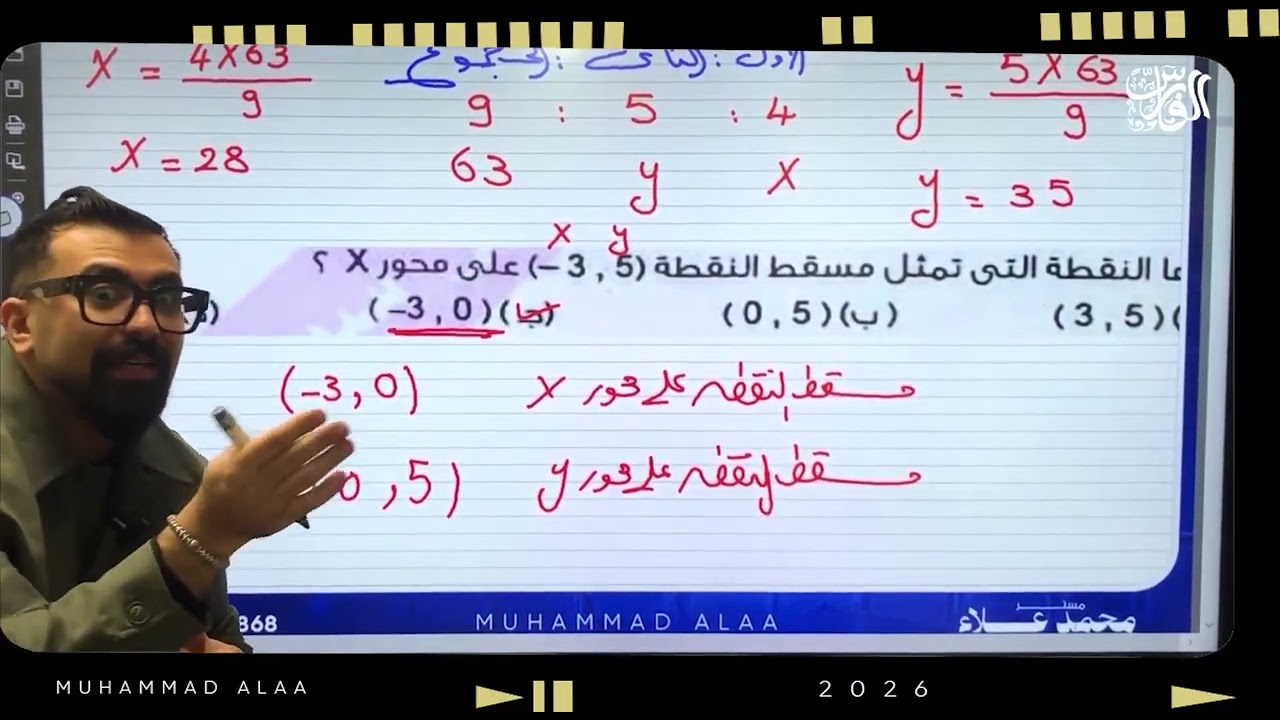 الفارس
الأول : الثانى : المجموع
X = 4 X 63 / 9
y = 5 X 63 / 9
4 : 5 : 9
X y 63
X = 28
y = 35
X y
ما النقطة التى تمثل مسقط النقطة (5 , 3 –) على محور X ؟
(3 , 5) (
(ب) (0 , 5)
(جـ) (–3 , 0)
مسقط النقطة على محور X (–3 , 0)
مسقط النقطة على محور y 0 , 5)
368
MUHAMMAD ALAA
مستر
محمد علاء
MUHAMMAD ALAA
2026